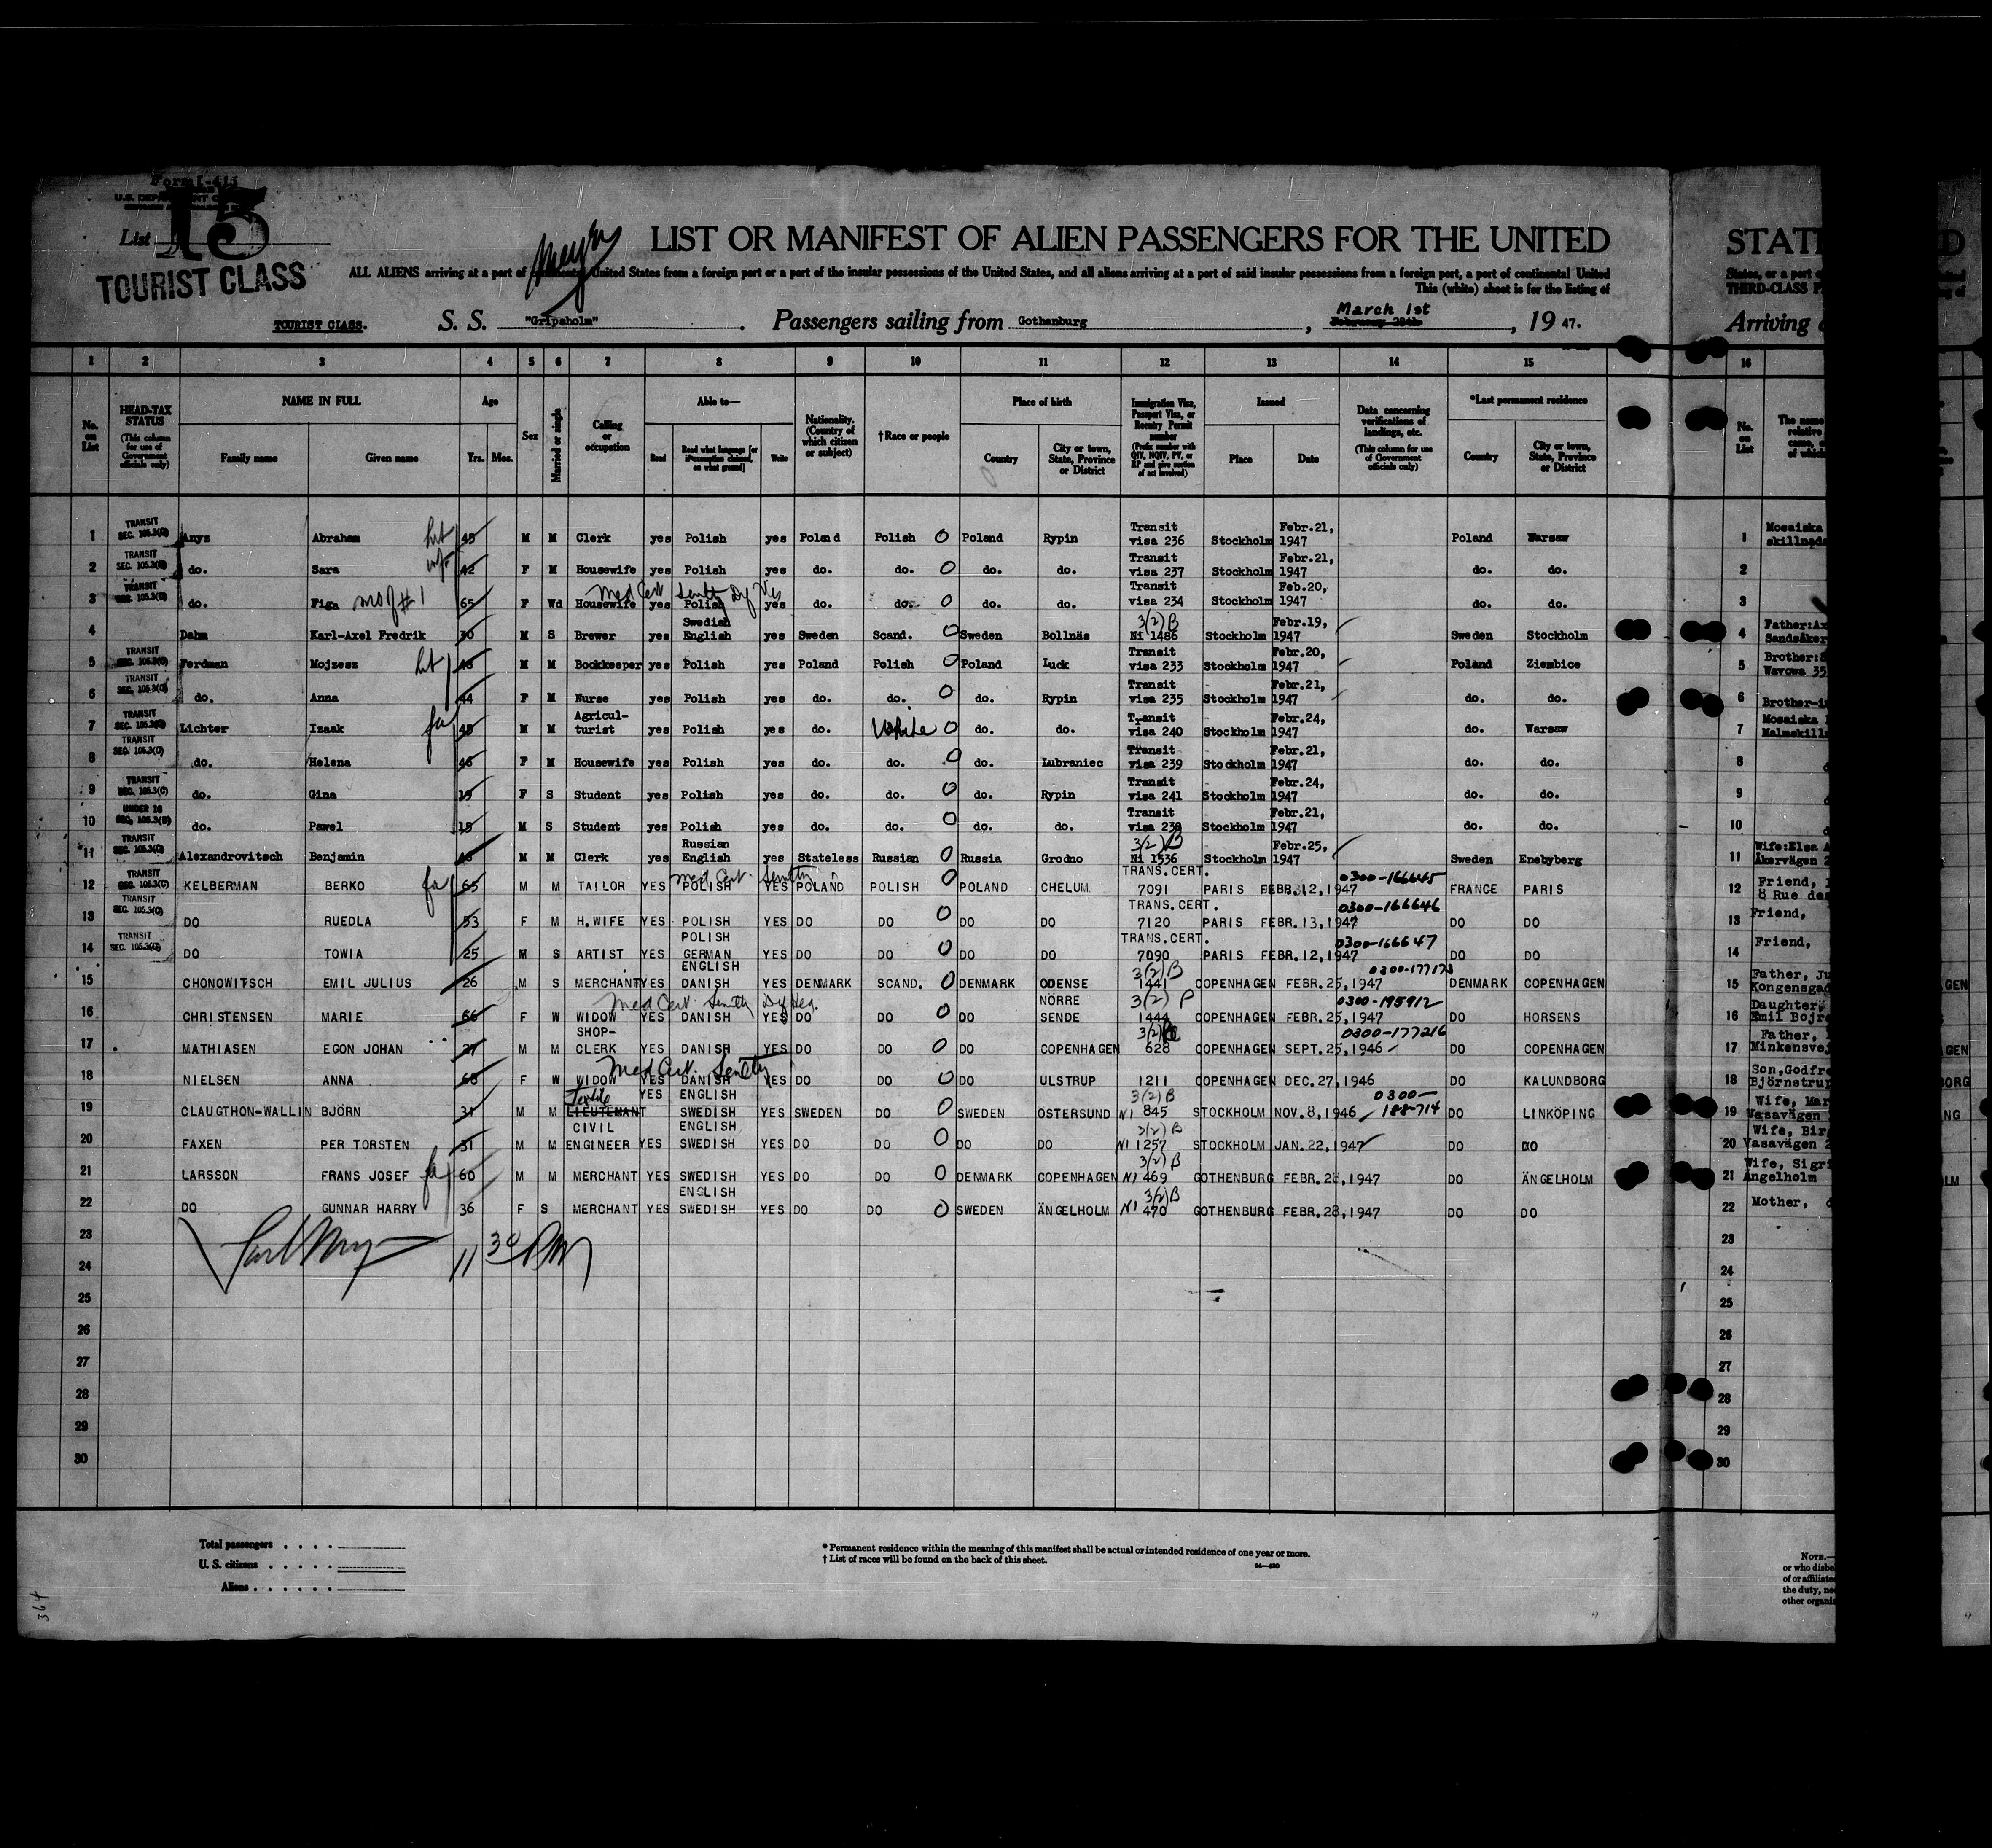 Form I-415
List 15
TOURIST CLASS
LIST OR MANIFEST OF ALIEN PASSENGERS FOR THE UNITED
STAT
ALL ALIENS arriving at a port of continental United States from a foreign port or a port of the insular possessions of the United States, and all aliens arriving at a port of said insular possessions from a foreign port, a port of continental United
States, or a port o
This (white) sheet is for the listing of
THIRD-CLASS P
TOURIST CLASS. S. S. "Gripsholm" Passengers sailing from Gothenburg, March 1st, 19 47.
Arriving
1 2 3 4 5 6 7 8 9 10 11 12 13 14 15 16
No. on List
HEAD-TAX STATUS (This column for use of Government officials only)
NAME IN FULL Family name Given name
Age Yrs. Mos.
Sex
Married or single
Calling or occupation
Able to— Read Read what language [or if exemption claimed, on what ground] Write
Nationality. (Country of which citizen or subject)
†Race or people
Place of birth Country City or town, State, Province or District
Immigration Visa, Passport Visa, or Reentry Permit number (Prefix number with QIV, NQIV, PV, or RP and give section of act involved)
Issued Place Date
Data concerning verifications of landings, etc. (This column for use of Government officials only)
*Last permanent residence Country City or town, State, Province or District
No. on List
1 TRANSIT SEC. 105.3(C) Anys Abraham 45 M M Clerk yes Polish yes Poland Polish O Poland Rypin Transit visa 236 Stockholm Febr.21, 1947 Poland Warsaw 1 Mosaiska
2 TRANSIT SEC. 105.3(C) do. Sara 42 F M Housewife yes Polish yes do. do. O do. do. Transit visa 237 Stockholm Febr.21, 1947 do. do. 2
3 TRANSIT do. Figa 65 F Wd Housewife yes Polish yes do. do. O do. do. Transit visa 234 Stockholm Feb.20, 1947 do. do. 3
4 Dahm Karl-Axel Fredrik 30 M S Brewer yes Swedish English yes Sweden Scand. O Sweden Bollnäs 3(2)B NI 1486 Stockholm Febr.19, 1947 Sweden Stockholm 4 Father:Ax
5 TRANSIT SEC. 105.3(C) Ferdman Mojzesz 48 M M Bookkeeper yes Polish yes Poland Polish O Poland Luck Transit visa 233 Stockholm Febr.20, 1947 Poland Ziembice 5 Brother:
6 TRANSIT SEC. 105.3(C) do. Anna 44 F M Nurse yes Polish yes do. do. O do. Rypin Transit visa 235 Stockholm Febr.21, 1947 do. do. 6 Brother-i
7 TRANSIT Lichter Izaak 45 M M Agricul-turist yes Polish yes do. White O do. do. Transit visa 240 Stockholm Febr.24, 1947 do. Warsaw 7 Mosaiska
8 TRANSIT SEC. 105.3(C) do. Helena 46 F M Housewife yes Polish yes do. do. O do. Lubraniec Transit visa 239 Stockholm Febr.21, 1947 do. do. 8
9 TRANSIT SEC. 105.3(C) do. Gina 19 F S Student yes Polish yes do. do. O do. Rypin Transit visa 241 Stockholm Febr.24, 1947 do. do. 9
10 UNDER 16 do. Pawel 15 M S Student yes Polish yes do. do. O do. do. Transit visa 238 Stockholm Febr.21, 1947 do. do. 10
11 TRANSIT SEC. 105.3(C) Alexandrovitsch Benjamin M M Clerk yes Russian English yes Stateless Russian O Russia Grodno 3(2)B NI 1536 Stockholm Febr.25, 1947 Sweden Enebyberg 11 Wife:Elsa A
12 TRANSIT SEC. 105.3(C) KELBERMAN BERKO 65 M M TAILOR YES POLISH YES POLAND POLISH O POLAND CHELUM TRANS.CERT. 7091 PARIS FEBR.12,1947 0300-166645 FRANCE PARIS 12 Friend, 8 Rue des
13 TRANSIT SEC. 105.3(C) DO RUEDLA 53 F M H.WIFE YES POLISH YES DO DO O DO DO TRANS.CERT. 7120 PARIS FEBR.13,1947 0300-166646 DO DO 13 Friend,
14 TRANSIT SEC. 105.3(C) DO TOWIA 25 M S ARTIST YES POLISH GERMAN YES DO DO O DO DO TRANS.CERT. 7090 PARIS FEBR.12,1947 0300-166647 DO DO 14 Friend,
15 CHONOWITSCH EMIL JULIUS 26 M S MERCHANT YES ENGLISH DANISH YES DENMARK SCAND. O DENMARK ODENSE 3(2)B 1441 COPENHAGEN FEBR.25,1947 0300-177173 DENMARK COPENHAGEN 15 Father, Ju
16 CHRISTENSEN MARIE 66 F W WIDOW YES DANISH YES DO DO O DO NÖRRE SENDE 3(2) 1444 COPENHAGEN FEBR.25,1947 0300-195912 DO HORSENS 16 Daughter,
17 MATHIASEN EGON JOHAN 27 M M SHOP-CLERK YES DANISH YES DO DO O DO COPENHAGEN 3(2)B 628 COPENHAGEN SEPT.25,1946 0300-177216 DO COPENHAGEN 17 Father, Minkensve
18 NIELSEN ANNA 68 F W WIDOW YES DANISH YES DO DO O DO ULSTRUP 1211 COPENHAGEN DEC.27,1946 DO KALUNDBORG 18 Son,Godfre Björnstrup
19 CLAUGTHON-WALLIN BJÖRN 31 M M Textile LIEUTENANT YES ENGLISH SWEDISH YES SWEDEN DO O SWEDEN OSTERSUND 3(2)B NI 845 STOCKHOLM NOV.8,1946 0300-188-714 DO LINKÖPING 19 Wife, Mar Vasavägen
20 FAXEN PER TORSTEN 31 M M CIVIL ENGINEER YES ENGLISH SWEDISH YES DO DO O DO DO 3(2)B NI 1257 STOCKHOLM JAN.22,1947 DO DO 20 Wife, Bir Vasavägen 2
21 LARSSON FRANS JOSEF 60 M M MERCHANT YES SWEDISH YES DO DO O DENMARK COPENHAGEN 3(2)B NI 469 GOTHENBURG FEBR.28,1947 DO ÄNGELHOLM 21 Wife, Sigri Ängelholm
22 DO GUNNAR HARRY 36 F S MERCHANT YES ENGLISH SWEDISH YES DO DO O SWEDEN ÄNGELHOLM 3(2)B NI 470 GOTHENBURG FEBR.28,1947 DO DO 22 Mother,
23 23
24 11 30 PM 24
25 25
26 26
27 27
28 28
29 29
30 30
Total passengers
U. S. citizens
Aliens
* Permanent residence within the meaning of this manifest shall be actual or intended residence of one year or more.
† List of races will be found on the back of this sheet.
NOTE.—
or who disbe
of or affiliate
the duty, ne
other organiz
364